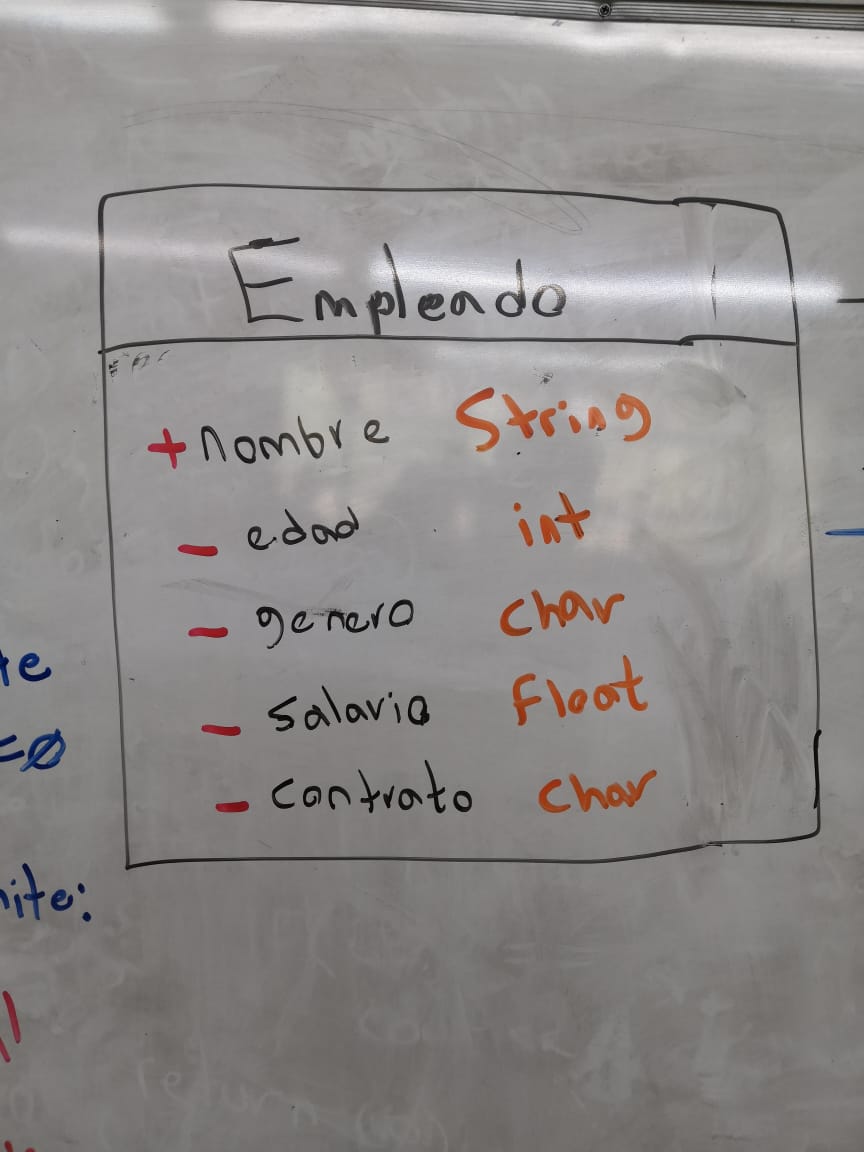 Empleado
+ nombre String
- edad int
- genero char
- salario Float
- contrato char
te
=0
nite: